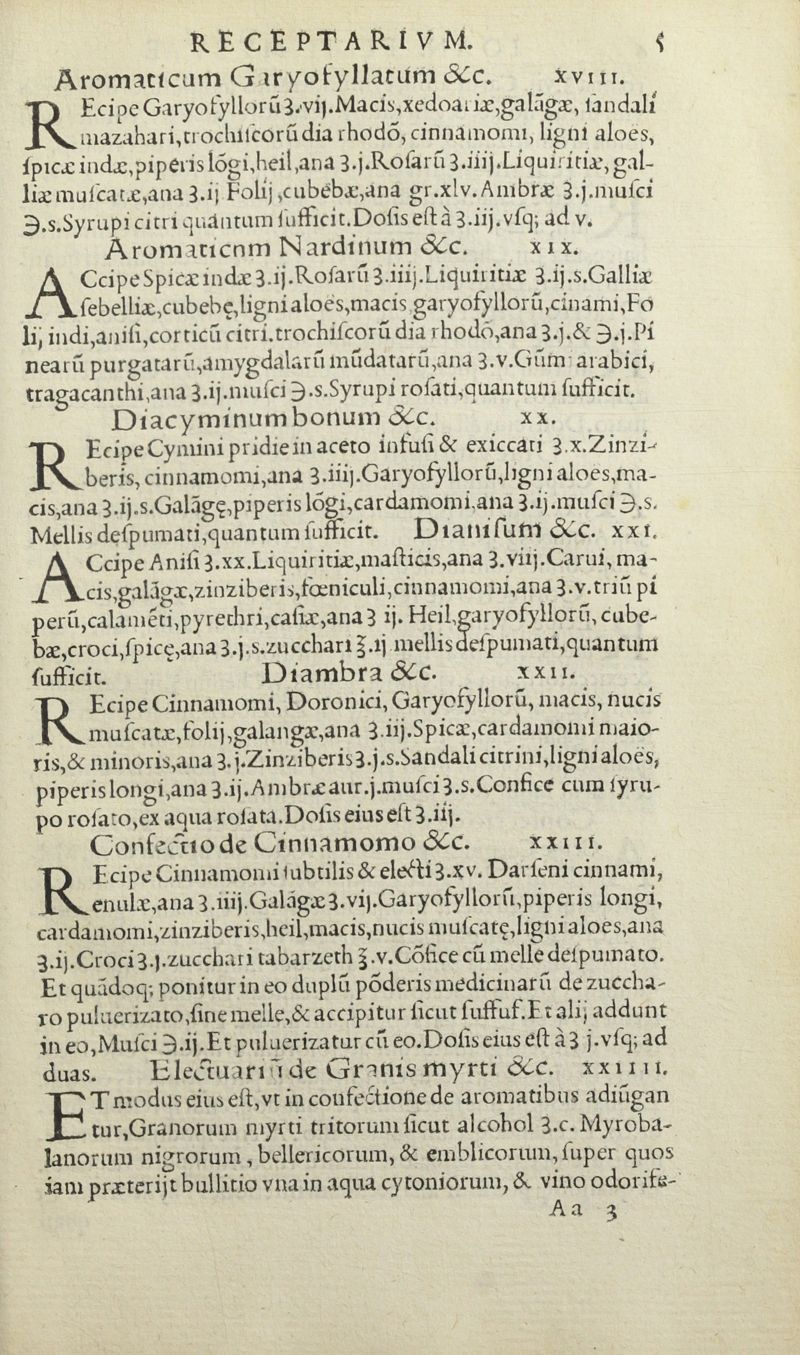 RECEPTARIVM. 5
Aromaticum Garyofyllatum &c. XVIII.
REcipe Garyofyllorũ ʒ.vij. Macis, xedoariæ, galãgæ, ſandali
mazahari, trochiſcorũ dia rhodõ, cinnamomi, ligni aloes,
ſpicæ indæ, piperis lõgi, heil, ana ʒ.j. Roſarũ ʒ.iiij. Liquiritiæ, gal-
liæ muſcatæ, ana ʒ.ij Folij, cubebæ, ana gr.xlv. Ambræ ʒ.j. muſci
℈.s. Syrupi citri quantum ſufficit. Doſis eſt à ʒ.iij. vſq; ad v.
Aromaticnm Nardinum &c. XIX.
ACcipe Spicæ indæ ʒ.ij. Roſarũ ʒ.iiij. Liquiritiæ ʒ.ij.s. Galliæ
ſebelliæ, cubebę, ligni aloes, macis garyofyllorũ, cinami, Fo
lij, indi, aniſi, corticũ citri. trochiſcorũ dia rhodõ, ana ʒ.j. & ℈.j. Pi
nearũ purgatarũ, amygdalarũ mũdatarũ, ana ʒ.v. Gũmi arabici,
tragacanthi, ana ʒ.ij. muſci ℈.s. Syrupi roſati, quantum ſufficit.
Diacyminum bonum &c. XX.
REcipe Cymini pridie in aceto infuſi & exiccati ʒ.x. Zinzi-
beris, cinnamomi, ana ʒ.iiij. Garyofyllorũ, ligni aloes, ma-
cis, ana ʒ.ij.s. Galãgę, piperis lõgi, cardamomi, ana ʒ.ij. muſci ℈.s.
Mellis deſpumati, quantum ſufficit. Dianiſum &c. XXI.
ACcipe Aniſi ʒ.xx. Liquiritiæ, maſticis, ana ʒ.viij. Carui, ma-
cis, galãgæ, zinziberis, fœniculi, cinnamomi, ana ʒ.v. triũ pi
perũ, calamẽti, pyrethri, caſiæ, ana ʒ ij. Heil, garyofyllorũ, cube-
bæ, croci, ſpicę, ana ʒ.j.s. zucchari ℥.ij mellis deſpumati, quantum
ſufficit. Diambra &c. XXII.
REcipe Cinnamomi, Doronici, Garyofyllorũ, macis, nucis
muſcatæ, folij, galangæ, ana ʒ.iij. Spicæ, cardamomi maio-
ris, & minoris, ana ʒ.j. Zinziberis ʒ.j.s. Sandali citrini, ligni aloes,
piperis longi, ana ʒ.ij. Ambræ aur.j. muſci ʒ.s. Confice cum ſyru-
po roſato, ex aqua roſata. Doſis eius eſt ʒ.iij.
Confectio de Cinnamomo &c. XXIII.
REcipe Cinnamomi ſubtilis & electi ʒ.xv. Darſeni cinnami,
enulæ, ana ʒ.iiij. Galãgæ ʒ.vij. Garyofyllorũ, piperis longi,
cardamomi, zinziberis, heil, macis, nucis muſcatę, ligni aloes, ana
ʒ.ij. Croci ʒ.j. zucchari tabarzeth ℥.v. Cõfice cũ melle deſpumato.
Et quãdoq; ponitur in eo duplũ põderis medicinarũ de zuccha-
ro puluerizato, ſine melle, & accipitur ſicut ſuffuf. Et alij addunt
in eo, Muſci ℈.ij. Et puluerizatur cũ eo. Doſis eius eſt à ʒ j. vſq; ad
duas. Electuariũ de Granis myrti &c. XXIIII.
ET modus eius eſt, vt in confectione de aromatibus adiũgan
tur, Granorum myrti tritorum ſicut alcohol ʒ.c. Myroba-
lanorum nigrorum, bellericorum, & emblicorum, ſuper quos
iam præterijt bullitio vna in aqua cytoniorum, & vino odorife-
Aa 3